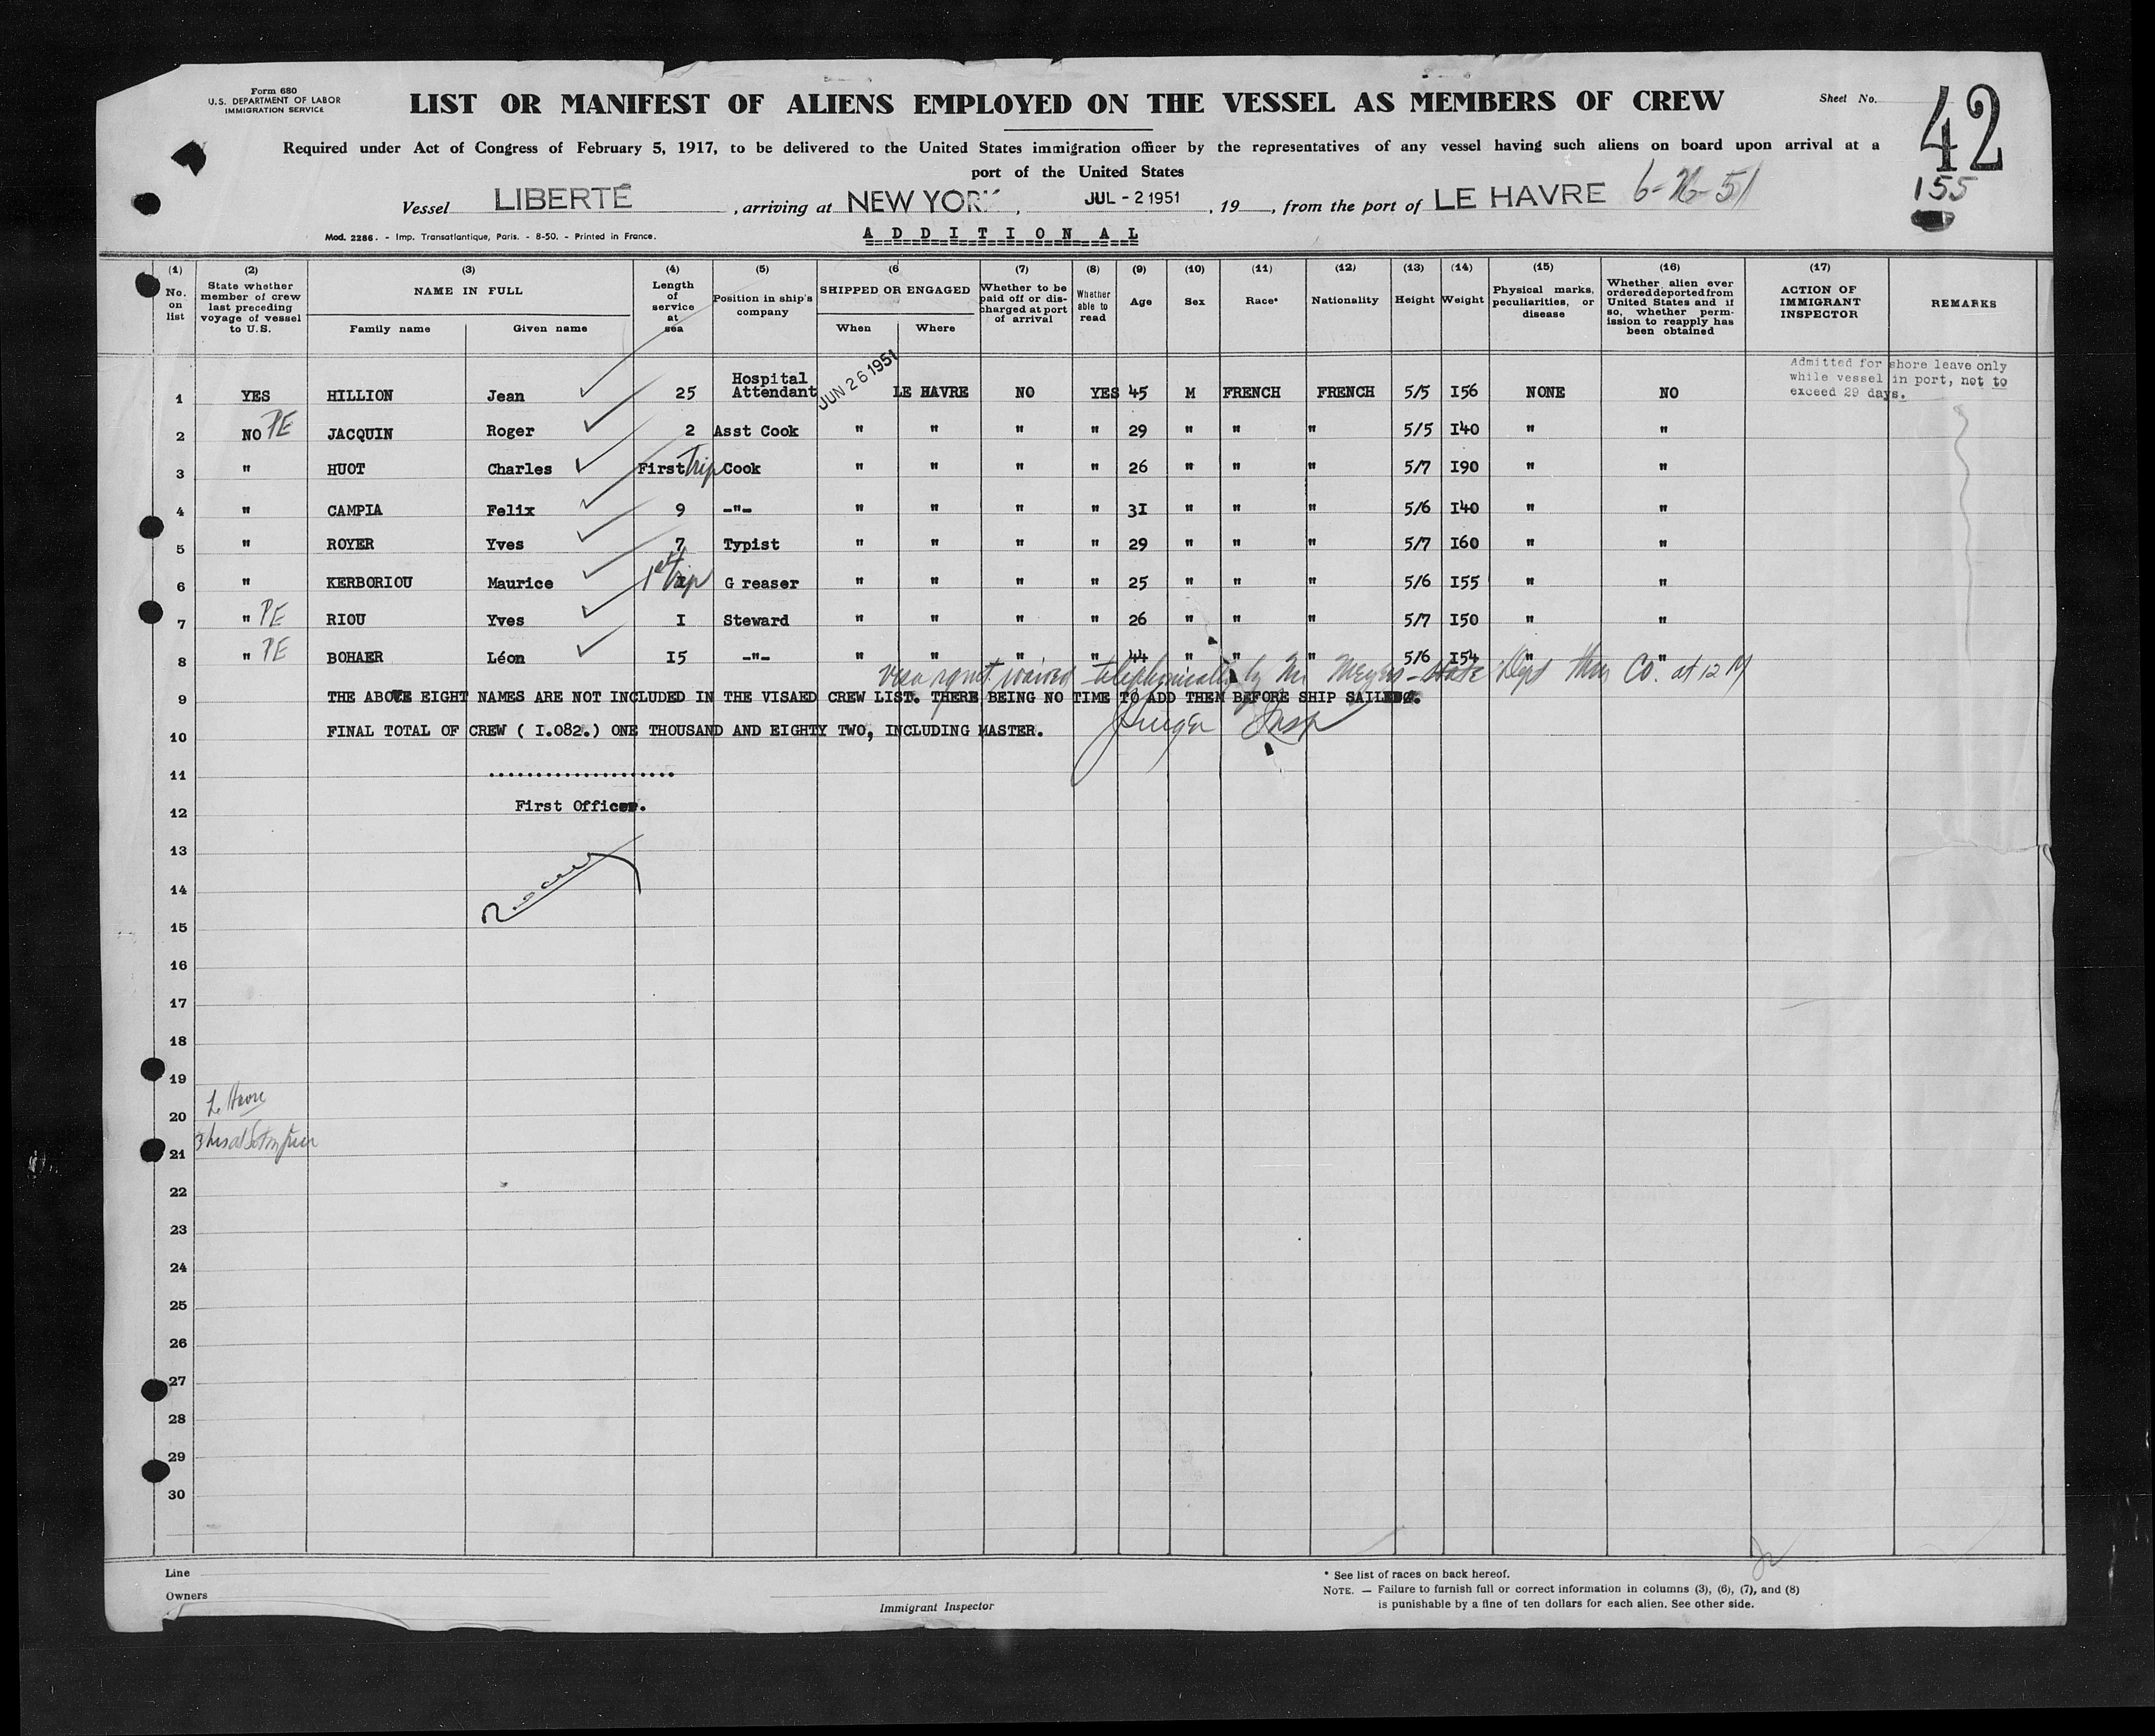 Form 680
U.S. DEPARTMENT OF LABOR
IMMIGRATION SERVICE
LIST OR MANIFEST OF ALIENS EMPLOYED ON THE VESSEL AS MEMBERS OF CREW
Sheet No.
42
155
Required under Act of Congress of February 5, 1917, to be delivered to the United States immigration officer by the representatives of any vessel having such aliens on board upon arrival at a
port of the United States
Vessel LIBERTÉ, arriving at NEW YORK, JUL - 2 1951, 19 , from the port of LE HAVRE 6-26-51
Mod. 2286. - Imp. Transatlantique, Paris. - 8-50. - Printed in France.
ADDITIONAL
(1) (2) (3) (4) (5) (6 (7) (8) (9) (10) (11) (12) (13) (14) (15) (16) (17)
No. on list
State whether member of crew last preceding voyage of vessel to U.S.
NAME IN FULL
Family name Given name
Length of service at sea
Position in ship's company
SHIPPED OR ENGAGED
When Where
Whether to be paid off or discharged at port of arrival
Whether able to read
Age
Sex
Race*
Nationality
Height
Weight
Physical marks, peculiarities, or disease
Whether alien ever ordered deported from United States and if so, whether permission to reapply has been obtained
ACTION OF IMMIGRANT INSPECTOR
REMARKS
Admitted for shore leave only
while vessel in port, not to
exceed 29 days.
1 YES HILLION Jean 25 Hospital Attendant JUN 26 1951 LE HAVRE NO YES 45 M FRENCH FRENCH 5/5 I56 NONE NO
2 NO PE JACQUIN Roger 2 Asst Cook " " " " 29 " " " 5/5 I40 " "
3 " HUOT Charles First Trip Cook " " " " 26 " " " 5/7 I90 " "
4 " CAMPIA Felix 9 -"- " " " " 3I " " " 5/6 I40 " "
5 " ROYER Yves 7 Typist " " " " 29 " " " 5/7 I60 " "
6 " KERBORIOU Maurice 1st Trip G reaser " " " " 25 " " " 5/6 I55 " "
7 " PE RIOU Yves I Steward " " " " 26 " " " 5/7 I50 " "
8 " PE BOHAER Léon I5 -"- " " " " 44 " " " 5/6 I54 " "
visa rqmt. waived telephonically by Mr Meyers - State Dept thru Co. at 12 M
9 THE ABOVE EIGHT NAMES ARE NOT INCLUDED IN THE VISAED CREW LIST. THERE BEING NO TIME TO ADD THEM BEFORE SHIP SAILING.
Insp
10 FINAL TOTAL OF CREW ( I.082.) ONE THOUSAND AND EIGHTY TWO, INCLUDING MASTER.
11 .....................
12 First Officer.
13
14
15
16
17
18
19
Le Havre
20
21
22
23
24
25
26
27
28
29
30
Line
Owners
Immigrant Inspector
* See list of races on back hereof.
NOTE. — Failure to furnish full or correct information in columns (3), (6), (7), and (8)
is punishable by a fine of ten dollars for each alien. See other side.